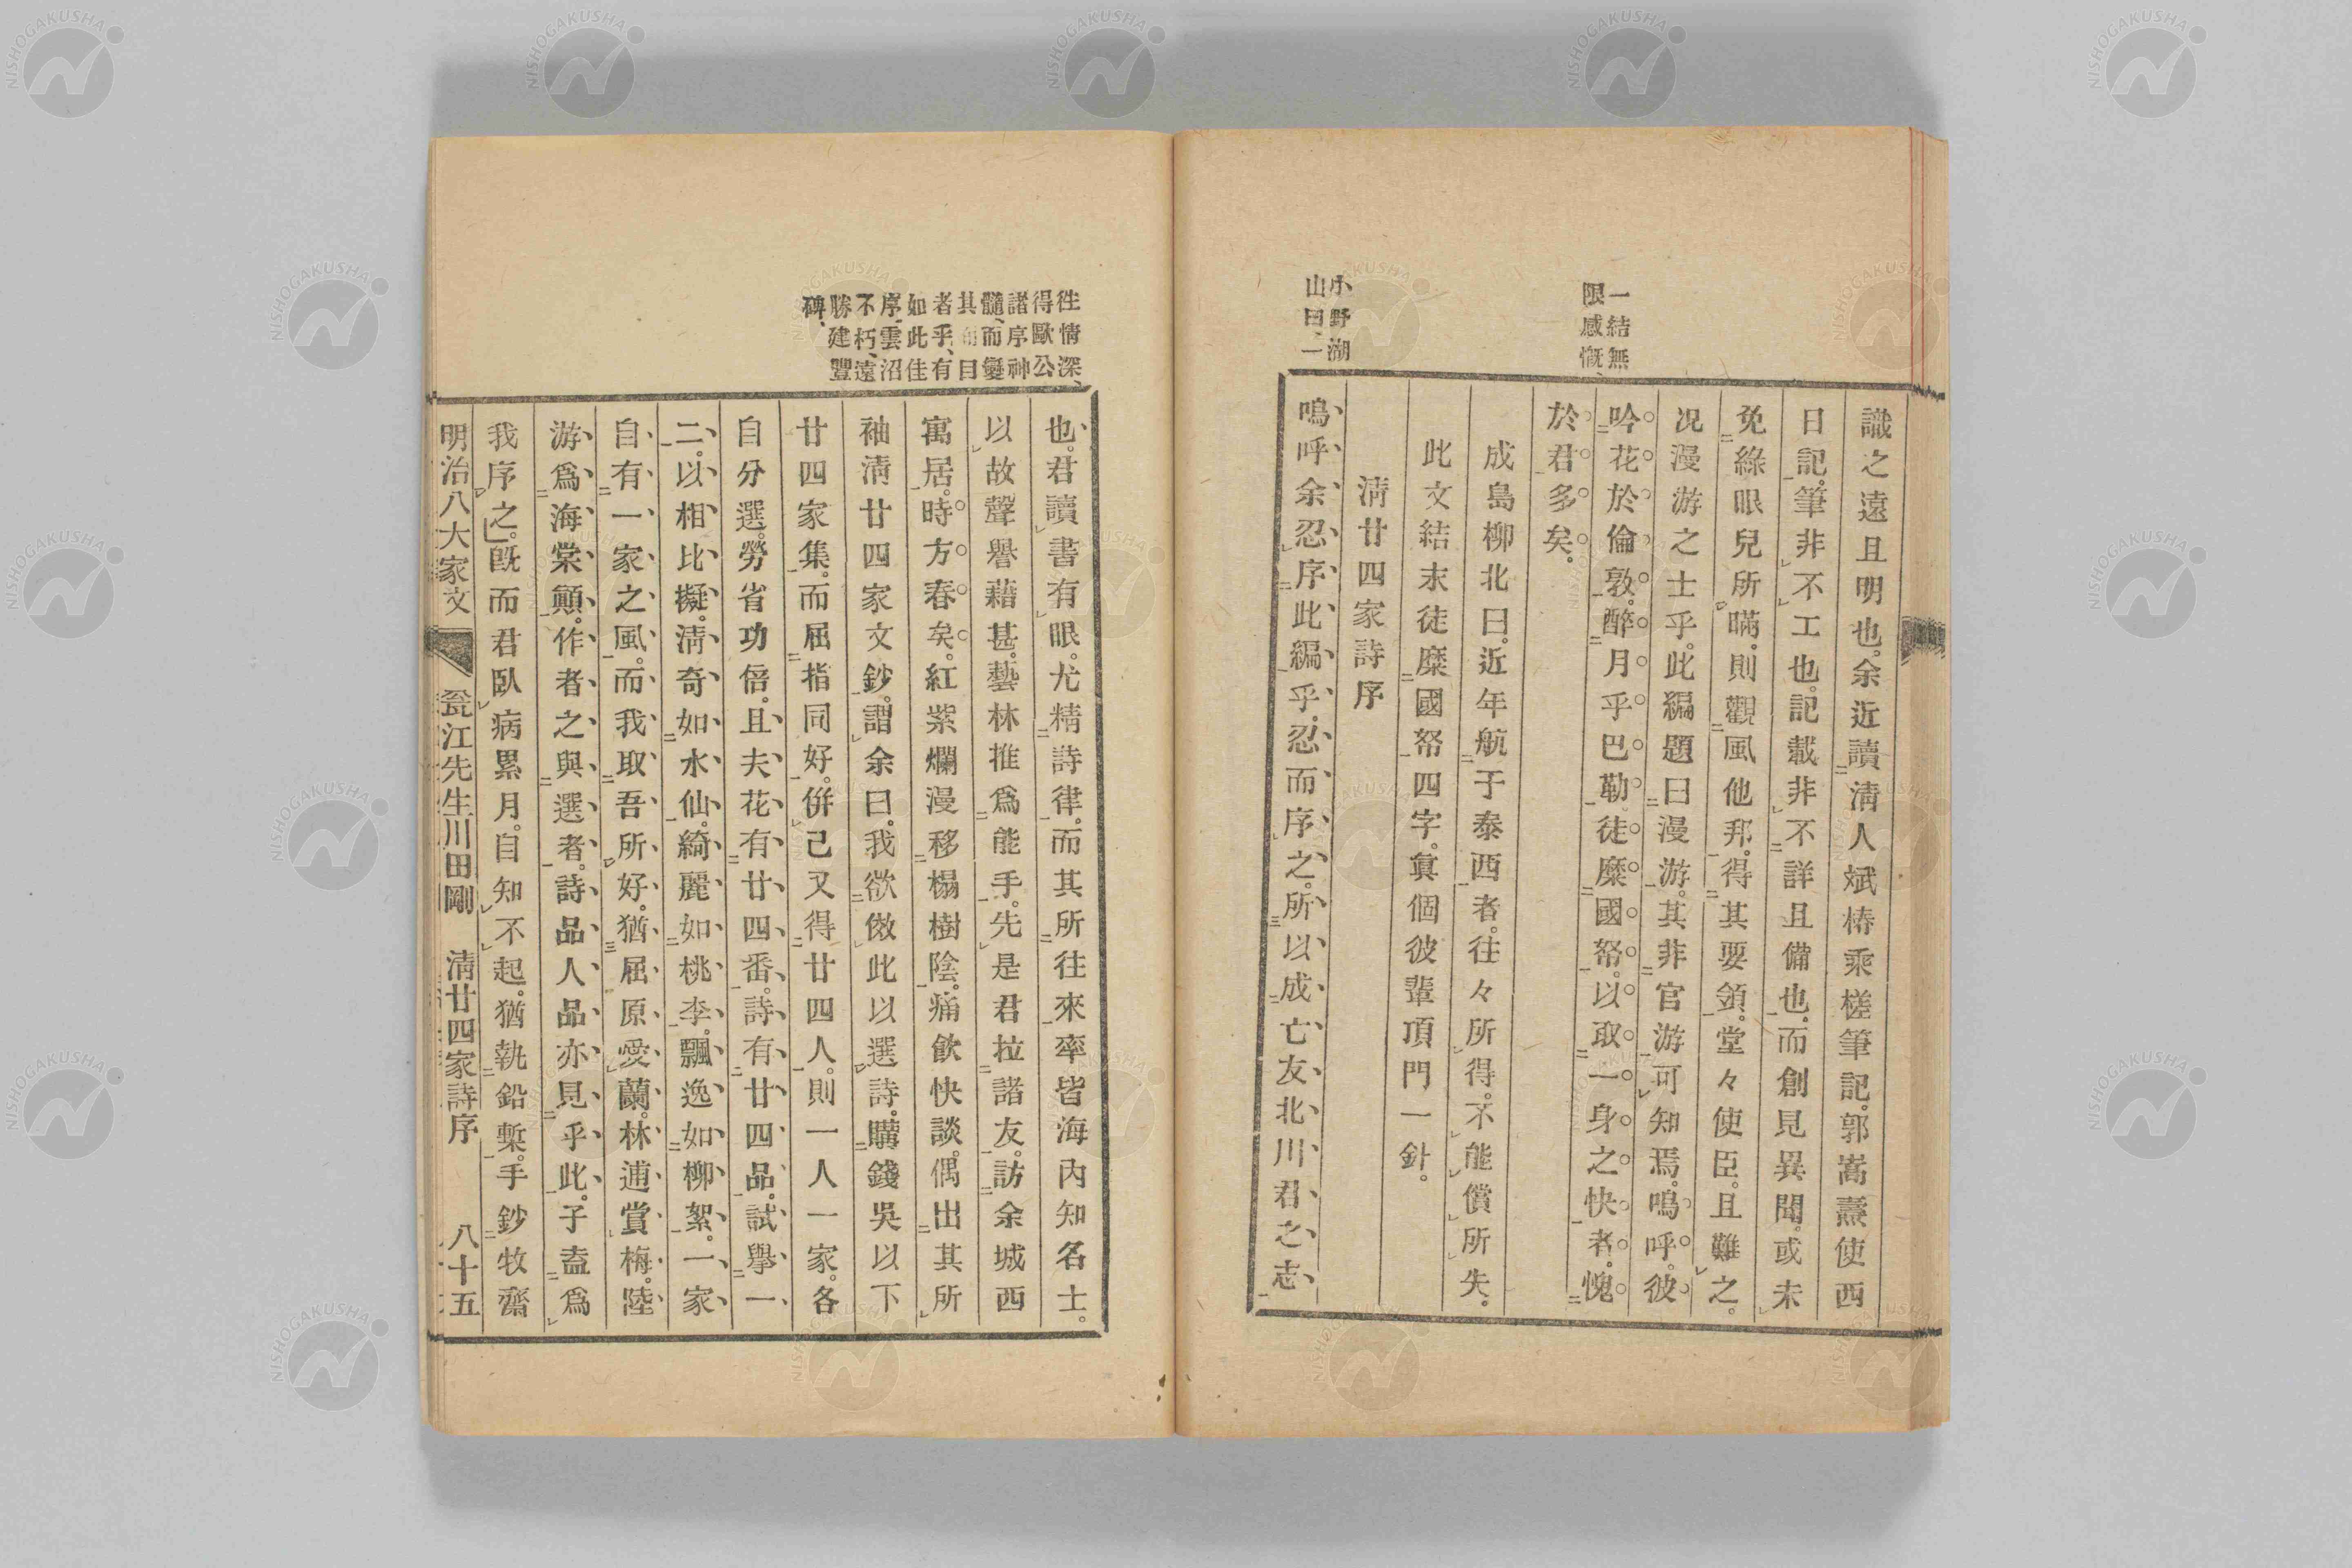 一結無
限感慨、
小野湖
山曰、一
識之遠且明也。余近讀清人斌椿乘槎筆記。郭嵩燾使西
日記。筆非不工也。記載非不詳且備也。而創見異聞。或未
免綠眼兒所瞞。則觀風他邦。得其要領。堂々使臣。且難之。
况漫游之士乎。此編題曰漫游。其非官游可知焉。嗚呼。彼
吟花於倫敦。醉月乎巴勒。徒糜國帑。以取一身之快者。愧
於君多矣。
成島柳北曰。近年航于泰西者。往々所得。不能償所失。
此文結末徒糜國帑四字。眞個彼輩頂門一針。
清廿四家詩序
嗚呼。余忍序此編乎。忍而序之。所以成亡友北川君之志
徃情深、
得歐公
諸序神
髓、而變
其 目
者乎、有
如此佳
序、雲沼
不朽、遠
勝建豐
碑、
也。君讀書有眼。尤精詩律。而其所往來率皆海内知名士。
以故聲譽藉甚。藝林推爲能手。先是君拉諸友。訪余城西
寓居。時方春矣。紅紫爛漫移榻樹陰。痛飲快談。偶出其所
袖清廿四家文鈔。謂余曰。我欲倣此以選詩。購錢吳以下
廿四家集。而屈指同好。併己又得廿四人。則一人一家。各
自分選。勞省功倍。且夫花有廿四番。詩有廿四品。試擧一
二。以相比擬。清奇如水仙。綺麗如桃李。飄逸如柳絮。一家
自有一家之風。而我取吾所好。猶屈原愛蘭。林逋賞梅。陸
游爲海棠顚。作者之與選者。詩品人品亦見乎此。子盍爲
我序之。既而君臥病累月。自知不起。猶執鉛槧。手鈔牧齋
明治八大家文 甕江先生川田剛 清廿四家詩序 八十五